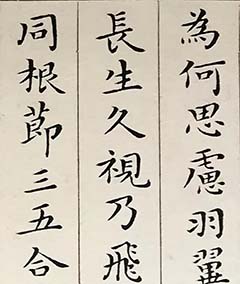 為何思慮羽翼
長生久視乃飛
同根節三五合